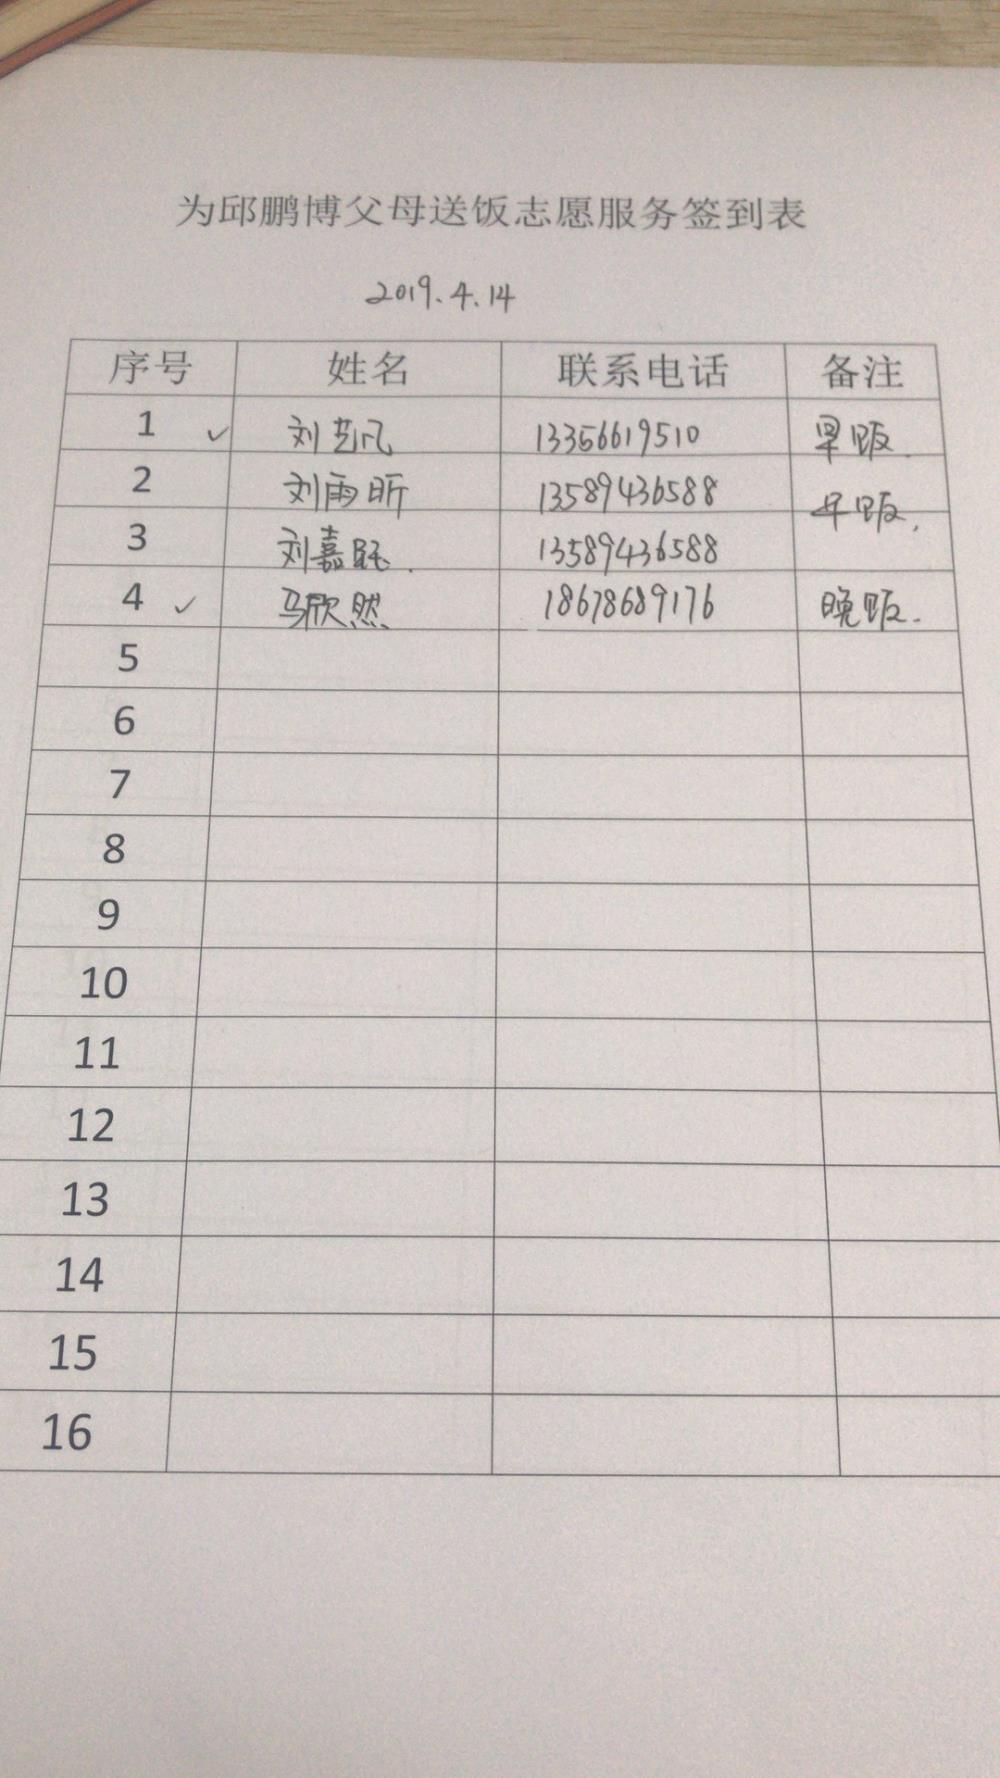 为邱鹏博父母送饭志愿服务签到表
2019.4.14
序号 姓名 联系电话 备注
1 ✓ 刘艺凡 13356619510 早饭.
2 刘雨昕 13589436588 午饭.
3 刘嘉 13589436588
4 ✓ 马欣然 18678689176 晚饭.
5
6
7
8
9
10
11
12
13
14
15
16